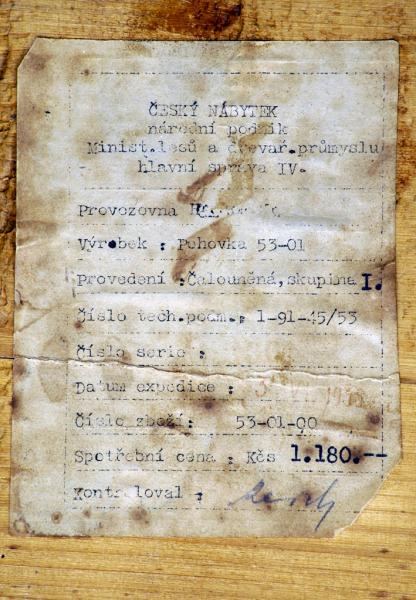 ČESKÝ NÁBYTEK
národní podnik
Minist.lesů a dřevař.průmyslu
hlavní správa IV.
Provozovna
Výrobek : Pohovka 53-01
Provedení :Čalouněná,skupina I.
Číslo tech.podm.: 1-91-45/53
Číslo serie :
Datum expedice :
Číslo zboží: 53-01-00
Spotřební cena : Kčs 1.180.--
Kontroloval :